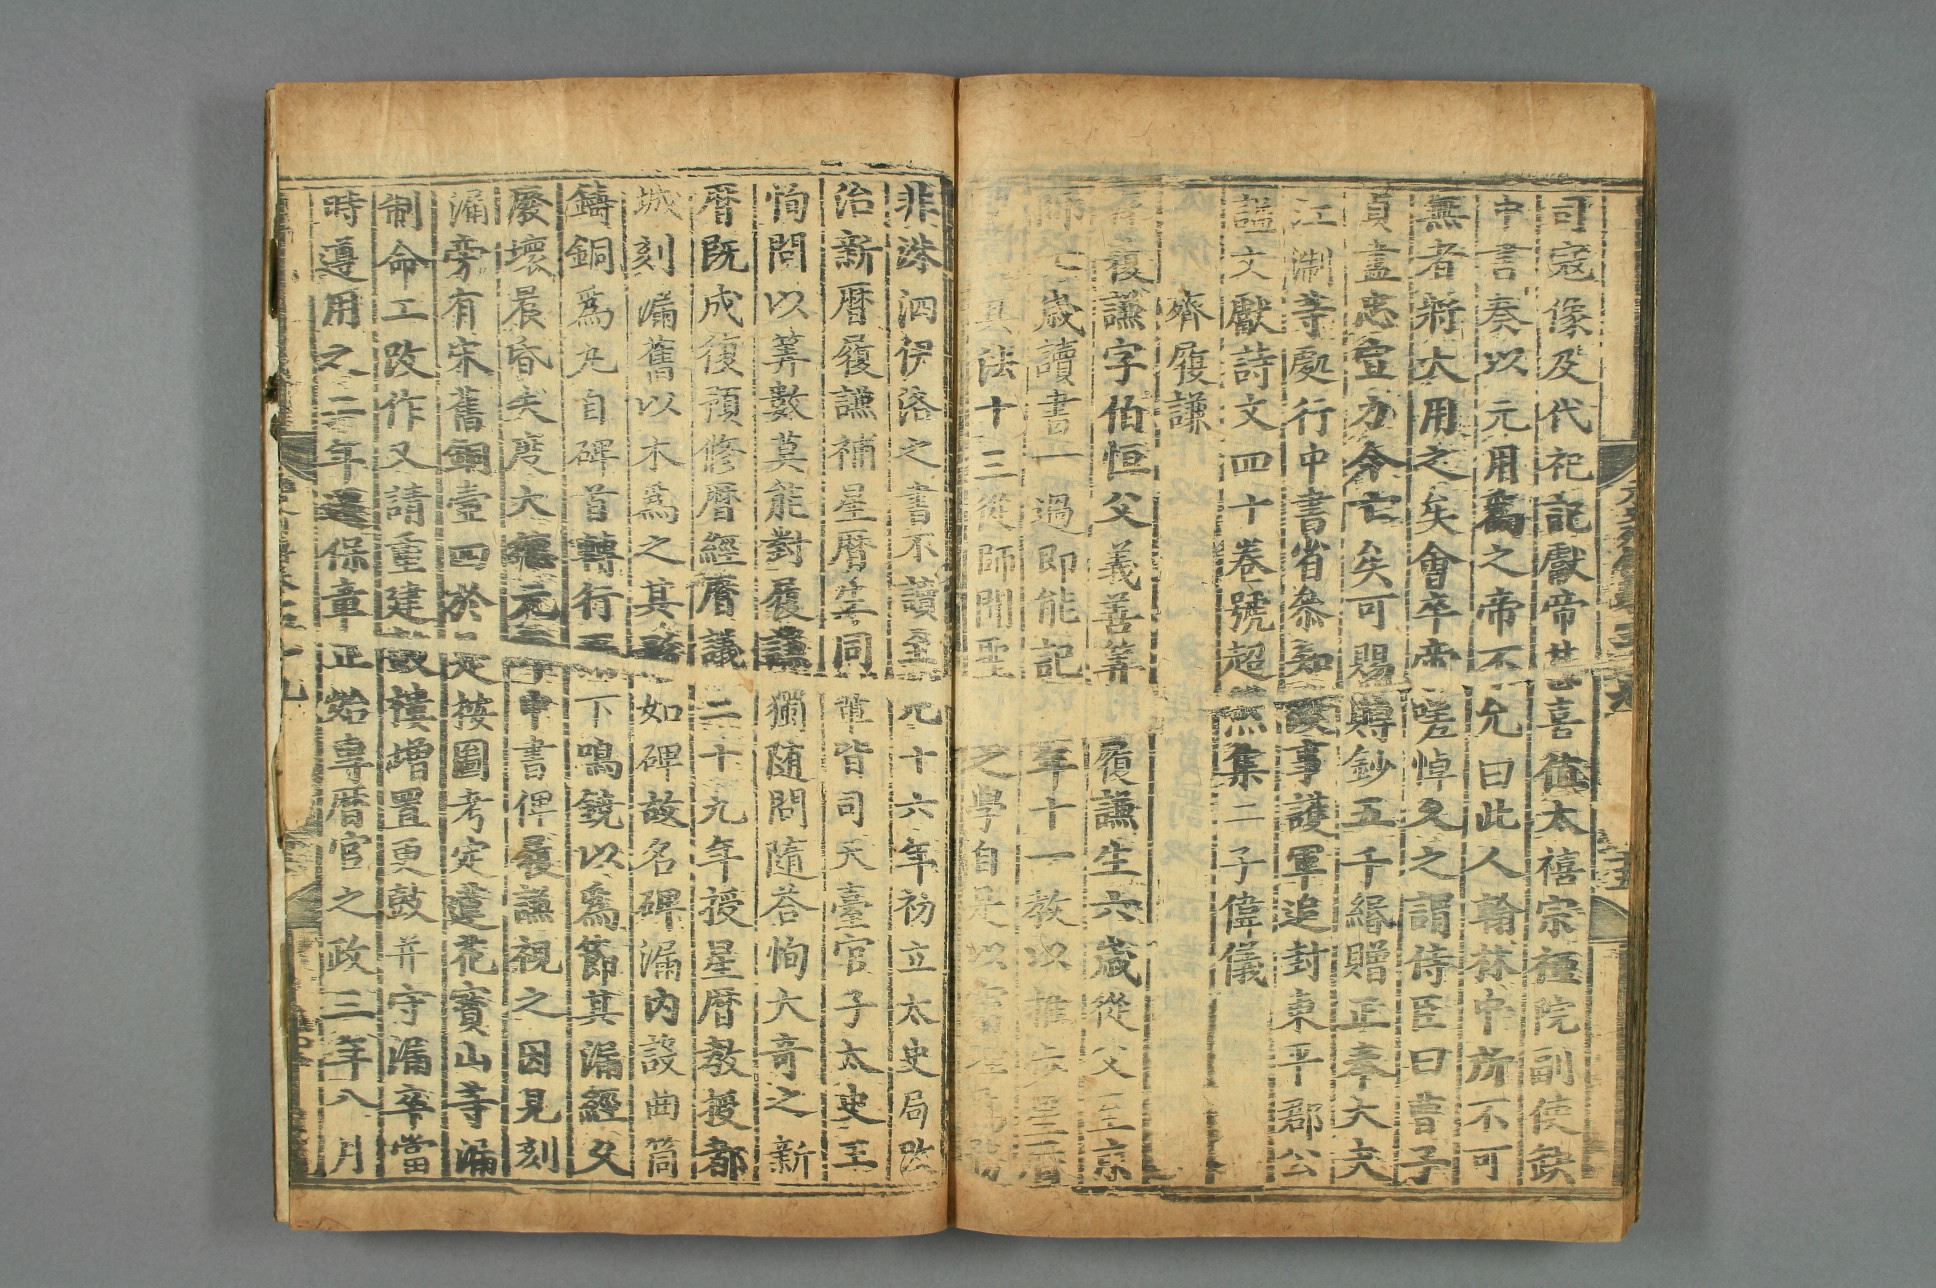 司寇像及代祀記獻帝甚喜值太禧宗禋院副使缺
中書奏以元用爲之帝不允曰此人翰林中所不可
無者將大用之矣會卒帝嗟悼久之謂侍臣曰曹子
貞盡忠宣力今亡矣可賜賻鈔五千緡贈正奉大夫
江淛等處行中書省參知政事護軍追封東平郡公
謚文獻詩文四十卷號超然集二子偉儀
齊履謙
齊履謙字伯恒父義善筭履謙生六歲從父至京
師七歲讀書一過即能記年十一教以推步星曆
其法十三從師聞聖之學自是以窮理爲務
非洙泗伊洛之書不讀至元十六年初立太史局改
治新曆履謙補星曆生同軰皆司天臺官子太史王
恂問以筭數莫能對履謙獨随問隨荅恂大奇之新
曆既成復預修曆經曆議二十九年授星曆教授都
城刻漏舊以木爲之其形如碑故名碑漏內設曲筒
鑄銅爲丸自碑首轉行而下鳴鐃以爲節其漏經久
廢壞晨昏失度大德元年中書俾履謙視之因見刻
漏旁有宋舊銅壺四於是按圖考定蓮花寶山等漏
制命工改作又請重建鼓樓增置更鼓并守漏卒當
時遵用之二年遷保章正始專曆官之政三年八月